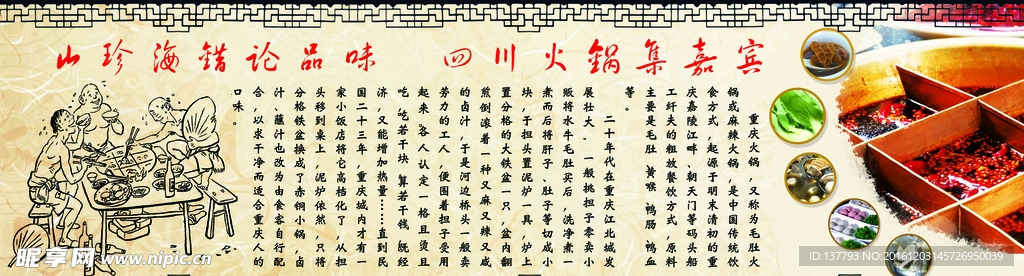 山珍海错论品味 四川火锅集嘉宾
重庆火锅，又称为毛肚火
锅或麻辣火锅，是中国传统饮
食方式，起源于明末清初的重
庆嘉陵江畔、朝天门等码头船
工纤夫的粗放餐饮方式，原料
主要是毛肚 黄喉 鸭肠 鸭血
等。
二十年代在重庆江北城发
展壮大、一般挑担子零卖小
贩将水牛毛肚买后，洗净煮一
煮而后将肝子、肚子等切成小
块，于担头置泥炉一具，炉上
置分格的大铁盆一只，盆内翻
煎倒滚着一种又麻又辣又咸
的卤汁，于是河边桥头一般卖
劳力的工人，便围着担子受用
起来 各人认定一格且烫且
吃，吃若干块 算若干钱 既经
济，又能增加热量……直到民
国二十三年，重庆城内才有一
家小饭店将它高档化了，从担
头移到桌上，泥炉依然，只将
分格铁盆换成了赤铜小锅，卤
汁、蘸汁也改为由食客自行配
合，以求干净而适合重庆人的
口味。
昵享网 www.nipic.cn
ID:137793 NO:20161203145726950039